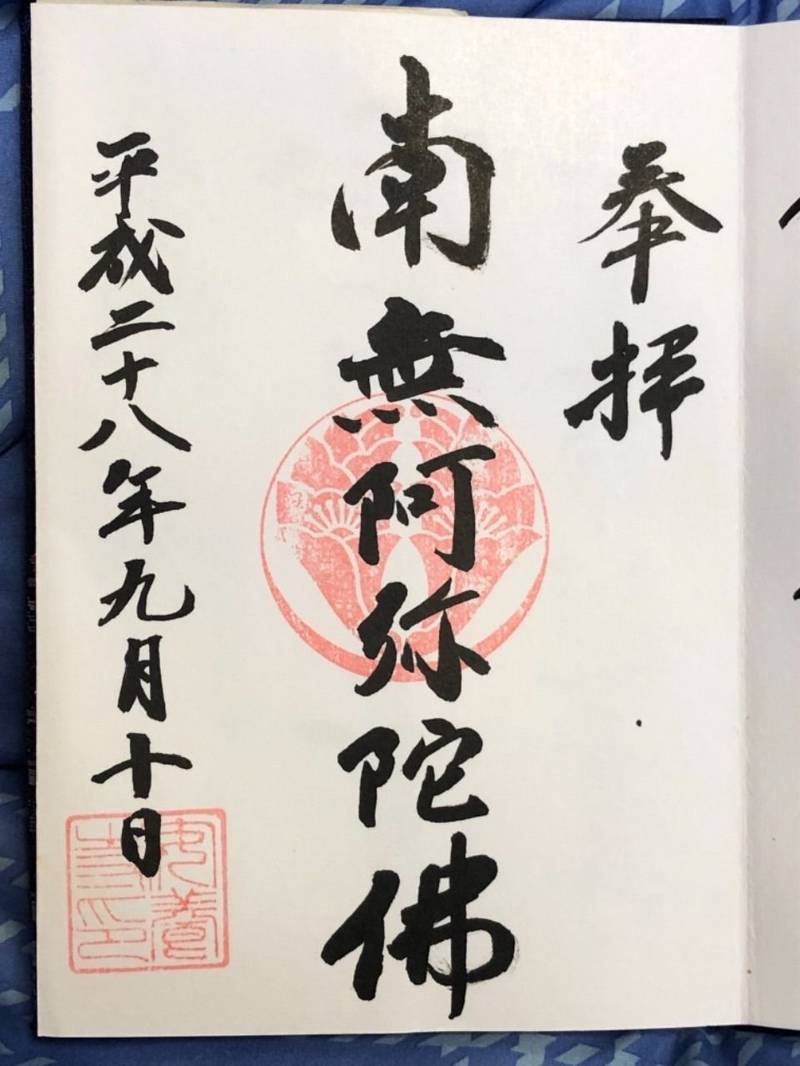 奉拝
南無阿弥陀佛
平成二十八年九月十日